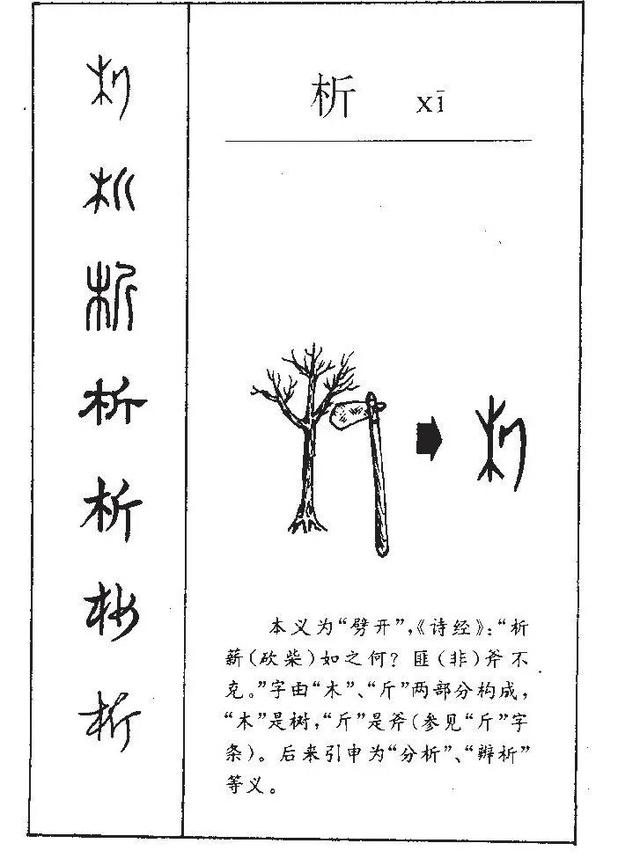 析 xī
析
析
析
析
析
析
析
析
本义为“劈开”,《诗经》:“析
薪(砍柴)如之何?匪(非)斧不
克。”字由“木”、“斤”两部分构成,
“木”是树,“斤”是斧(参见“斤”字
条)。后来引申为“分析”、“辨析”
等义。